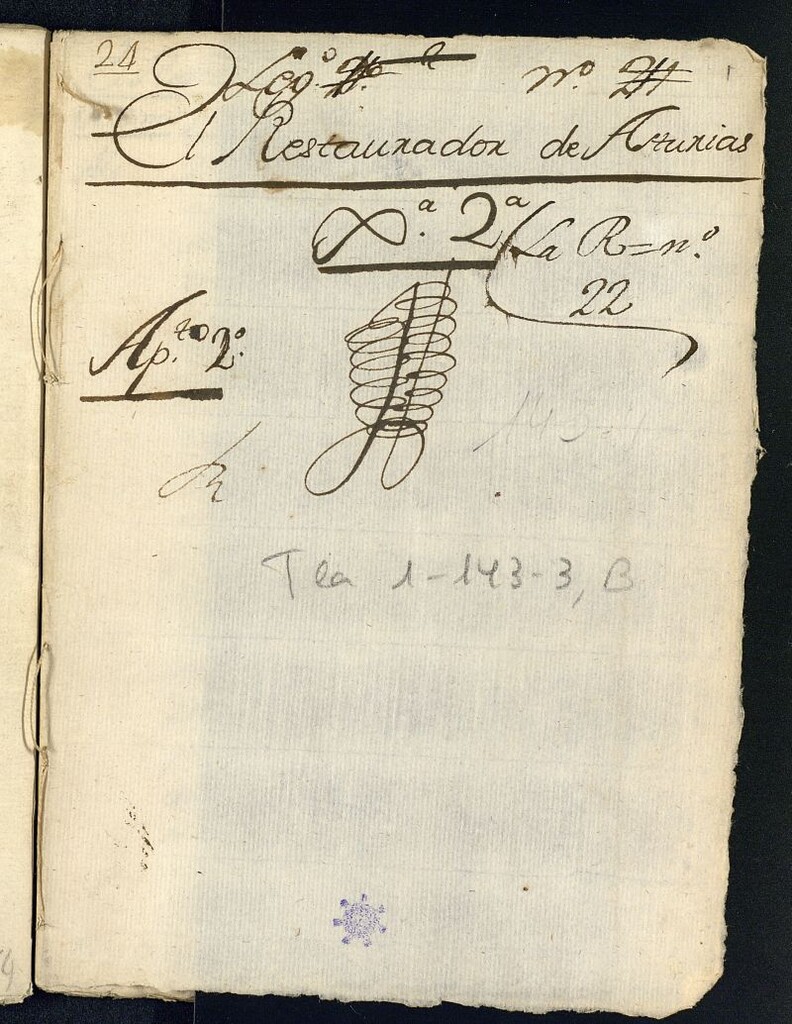 24
Leg.º nº 24 1
El Restaurador de Asturias
J.ª 2ª La R=n.º
22
Ap.to 2.º
Tea 1-143-3, B